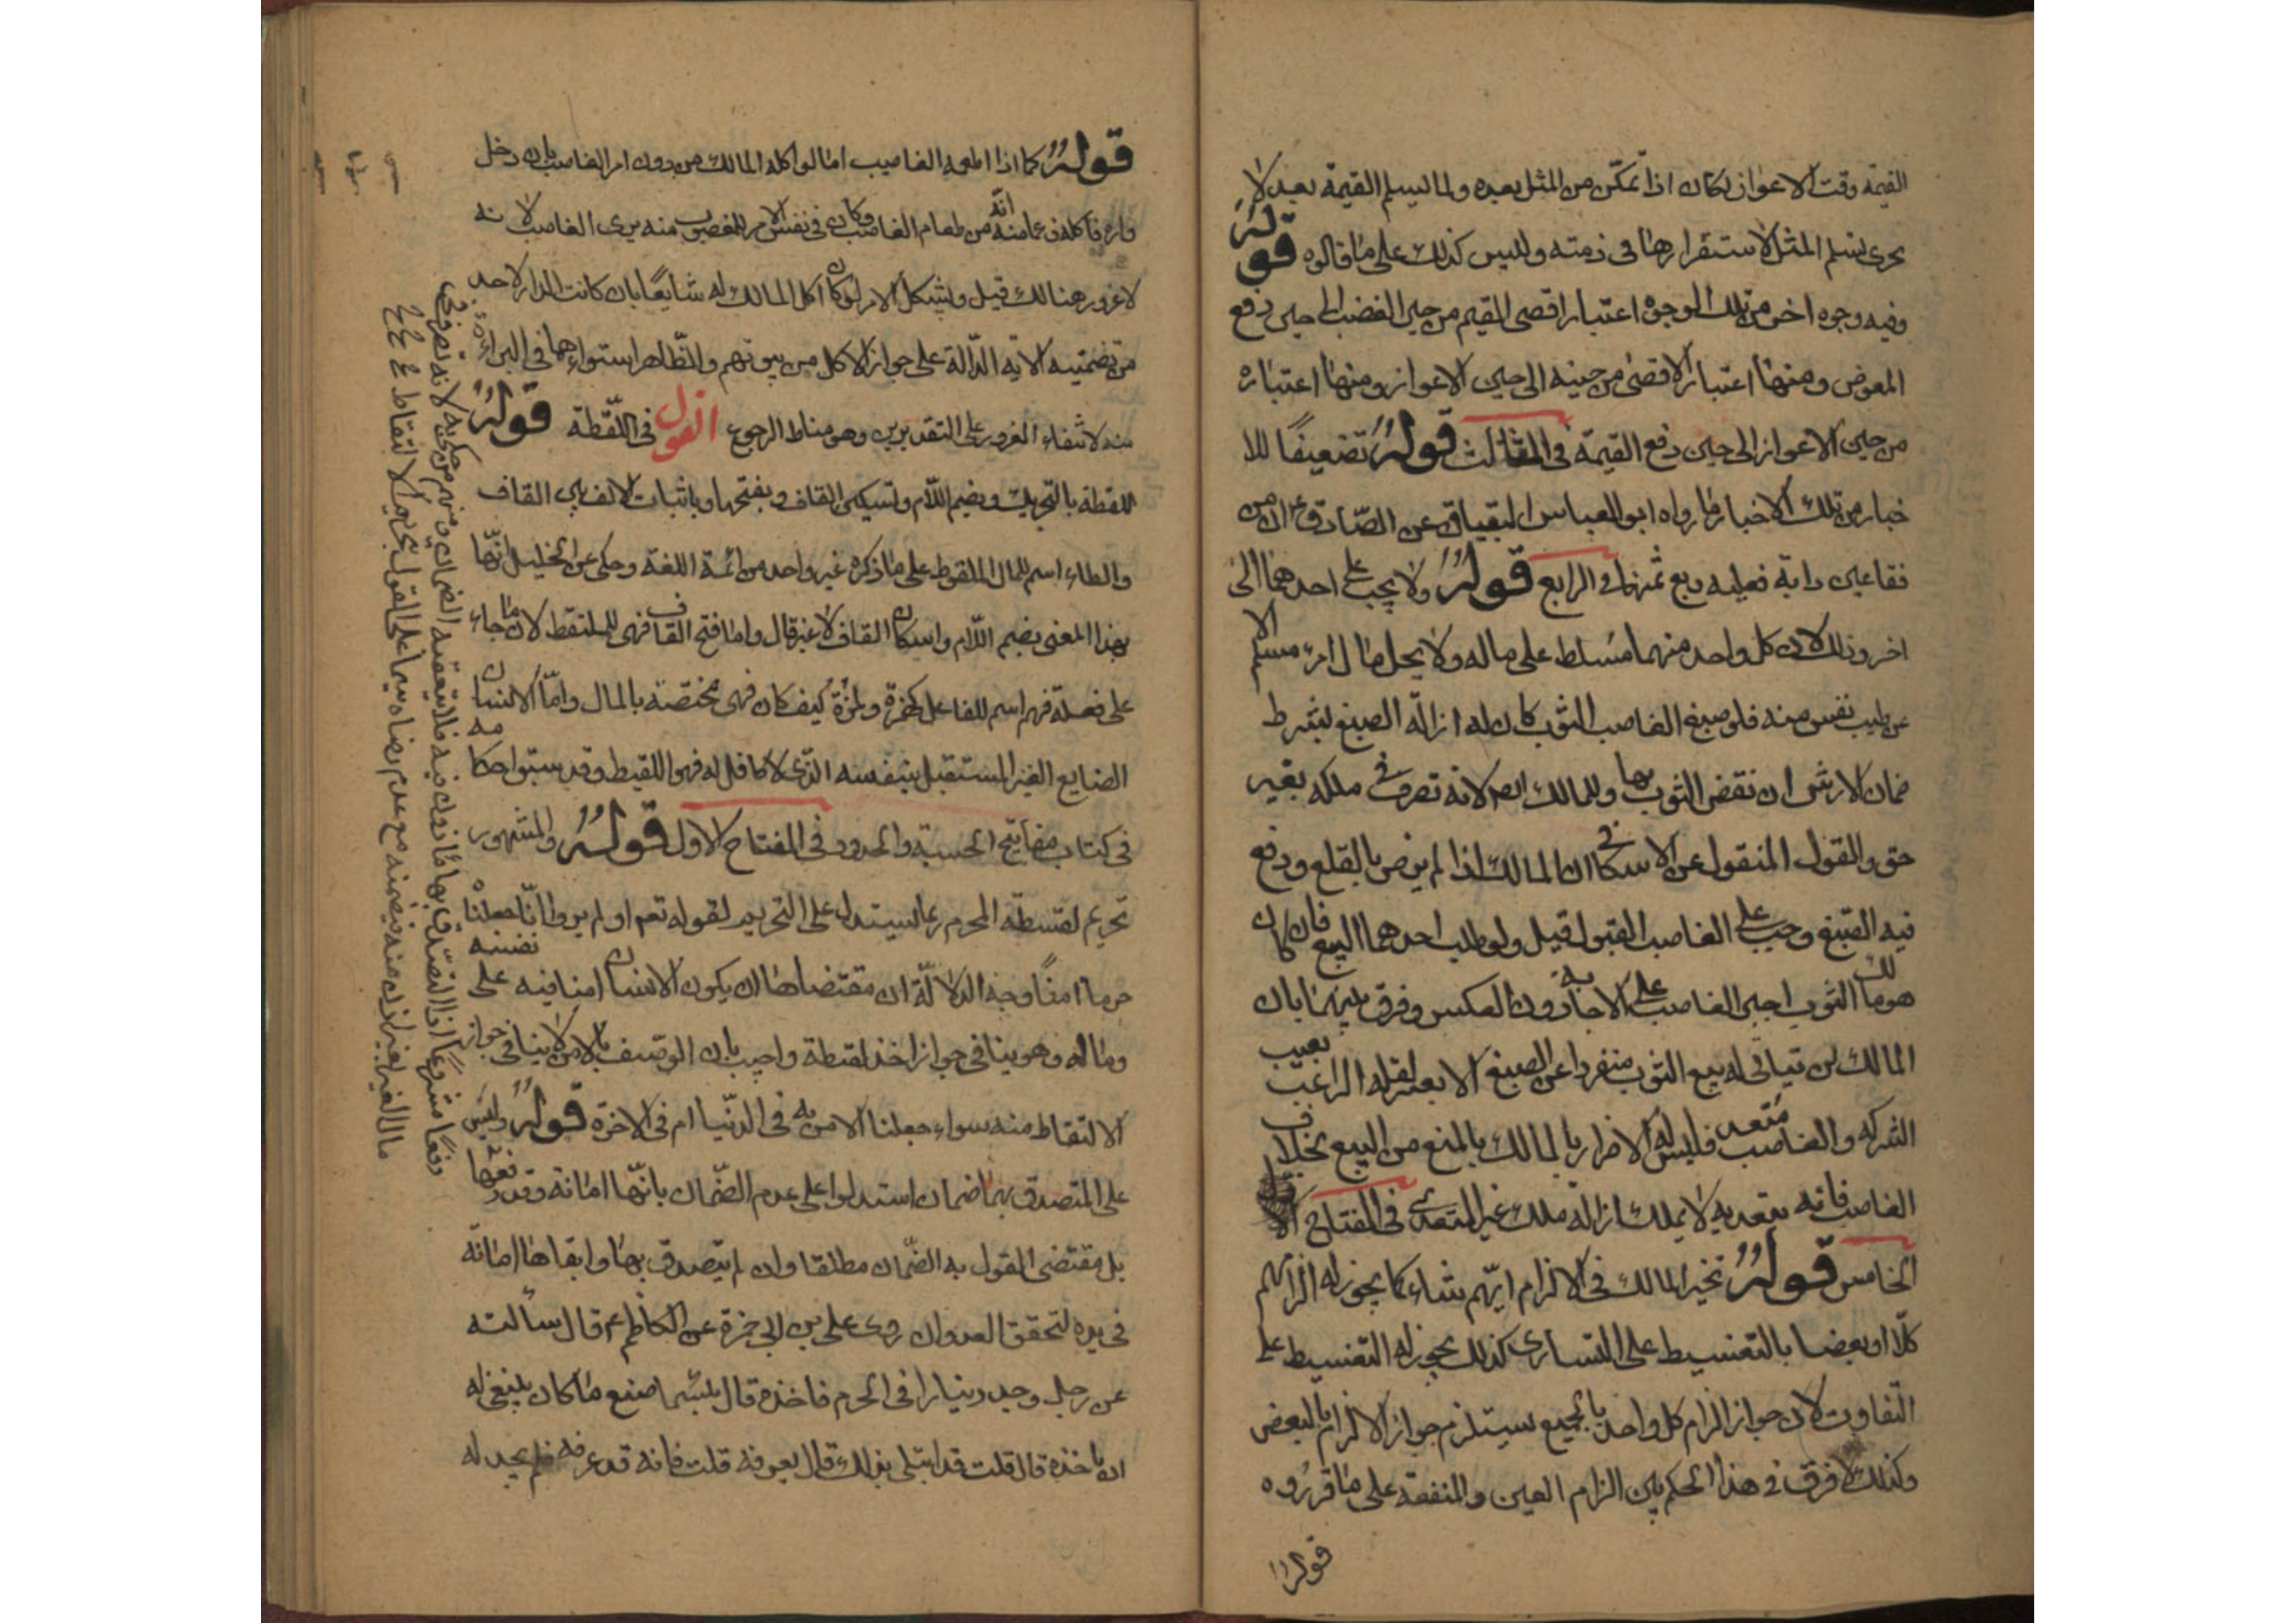 القيمة وقت الاعواز لكان اذا تمكّن من المثل بعده ولما يسلم القيمة بعد لا
يجزى تسلم المثل لاستقرارها فى ذمته وليس كذلك على ما قالوه قوله
وفيه وجوه اخر من تلك الوجوه اعتبار اقصى القيم من حين الغصب الى حين دفع
المعوض ومنها اعتبار الاقصى من حينه الى حين الاعواز ومنها اعتباره
من حين الاعواز الى حين دفع القيمة فى الثالث قوله تضعيفا للا
خبار من تلك الاخبار ما رواه ابو العباس البقباق عن الصادق ع ان من
فقا عين دابة فعليه ربع ثمنها فى الرابع قوله ولا يجب على احدهما الى
اخر وذلك لان كل واحد منهما مسلط على ماله ولا يحل مال امرء مسلم الا
عن طيب نفس منه فلو صبغ الغاصب الثوب كان له ازالة الصبغ بشرط
ضمان الارش ان نقص الثوب بها وللمالك ايضا لانه تصرف فى ملكه بغير
حق والقول المنقول عن الاسكافى ان المالك اذا لم يرض بالقلع ودفع
فيه الصبغ وجب على الغاصب القبول قيل ولو طلب احدهما البيع فان كان
هو مالك الثوب اجبر الغاصب على الاجابة دون العكس وفرق بينهما بان
المالك لن يتاتى له بيع الثوب منفردا عن الصبغ الا بعسر لقلة الراغب بعيب
الشركه والغاصب متعد فليس له الاضرار بالمالك بالمنع من البيع بخلاف
الغاصب فانه بتعديه لا يملك ازالة ملك غير المتعدى فى المفتاح
الخامس قوله تخير المالك فى الالزام ايهم شاء كما يجوز له الزامهم
كلا او بعضا بالتقسيط على التساوى كذلك يجوز له التقسيط على
التفاوت لان جواز الزام كل واحد بالجميع يستلزم جواز الالزام بالبعض
وكذلك لا فرق فى هذا الحكم بين الزام العين والمنفعة على ما قرروه
قوله
قوله كما اذا اطعمه الغاصب اما لو اكله المالك من دون امر الغاصب بان دخل
داره فاكله زعما منه انه من طعام الغاصب وكان فى نفس الامر المغصوب منه برى الغاصب لانه
لا غرور هنالك قيل ويشكل الامر لو كان اكل المالك له شايعا بان كانت الدار لاحد
من تضمنته الاية الدالة على جواز الاكل من بيوتهم والظاهر استواءهما فى البراءة
منه لانتفاء الغرور على التقديرين وهو مناط الرجوع القول فى اللقطة قوله
اللقطة بالتحريك وبضم اللام وتسكين القاف وبفتحها وباثبات الالف بين القاف
والطاء اسم للمال الملقوط على ما ذكره غير واحد من ائمة اللغة وحكى عن الخليل انها
بهذا المعنى بضم اللام واسكان القاف لا غير قال واما فتح القاف فهى للملتقط لان ما جاء
على فعلة فهو اسم للفاعل كهمزة ولمزة كيف كان فهى مختصة بالمال واما الانسان
الضايع الغير المستقبل بنفسه الذى لا كافل له فهو اللقيط وقد سبق احكامه
فى كتاب مفاتيح الحسبة والحدود فى المفتاح الاول قوله والمشهور
تحريم لقطة الحرم ربما يستدل على التحريم لقوله تعم اولم يروا انا جعلنا
حرما امنا وجه الدلالة ان مقتضاها ان يكون الانسان امنا فيه على نفسه
وماله وهو ينافى جواز اخذ لقطة واجيب بان الوصف بالامن لا ينافى جواز
الالتقاط منه سواء جعلنا الامن به فى الدنيا ام فى الاخرة قوله وليس
على المتصدق بها ضمان استدلوا على عدم الضمان بانها امانة وقد دفعها
بل مقتضى القول به الضمان مطلقا وان لم يتصدق بها وابقاها امانة
فى يده لتحقق العدوان روى على بن ابى حمزة عن الكاظم ع قال سألته
عن رجل وجد دينارا فى الحرم فاخذه قال بئسما صنع ما كان ينبغى له
ان ياخذه قال قلت قد ابتلى بذلك قال يعرفه قلت فانه قد عرفه فلم يجد له
دفعا مشروعا اذ التصدق بها مأذون فيه فلا يتعقبه الضمان ومنهم من حكم به لانه تصرف فى
مال الغير بغير اذن منه فيضمنه مع عدم رضاه سيما على القول بتحريم الالتقاط